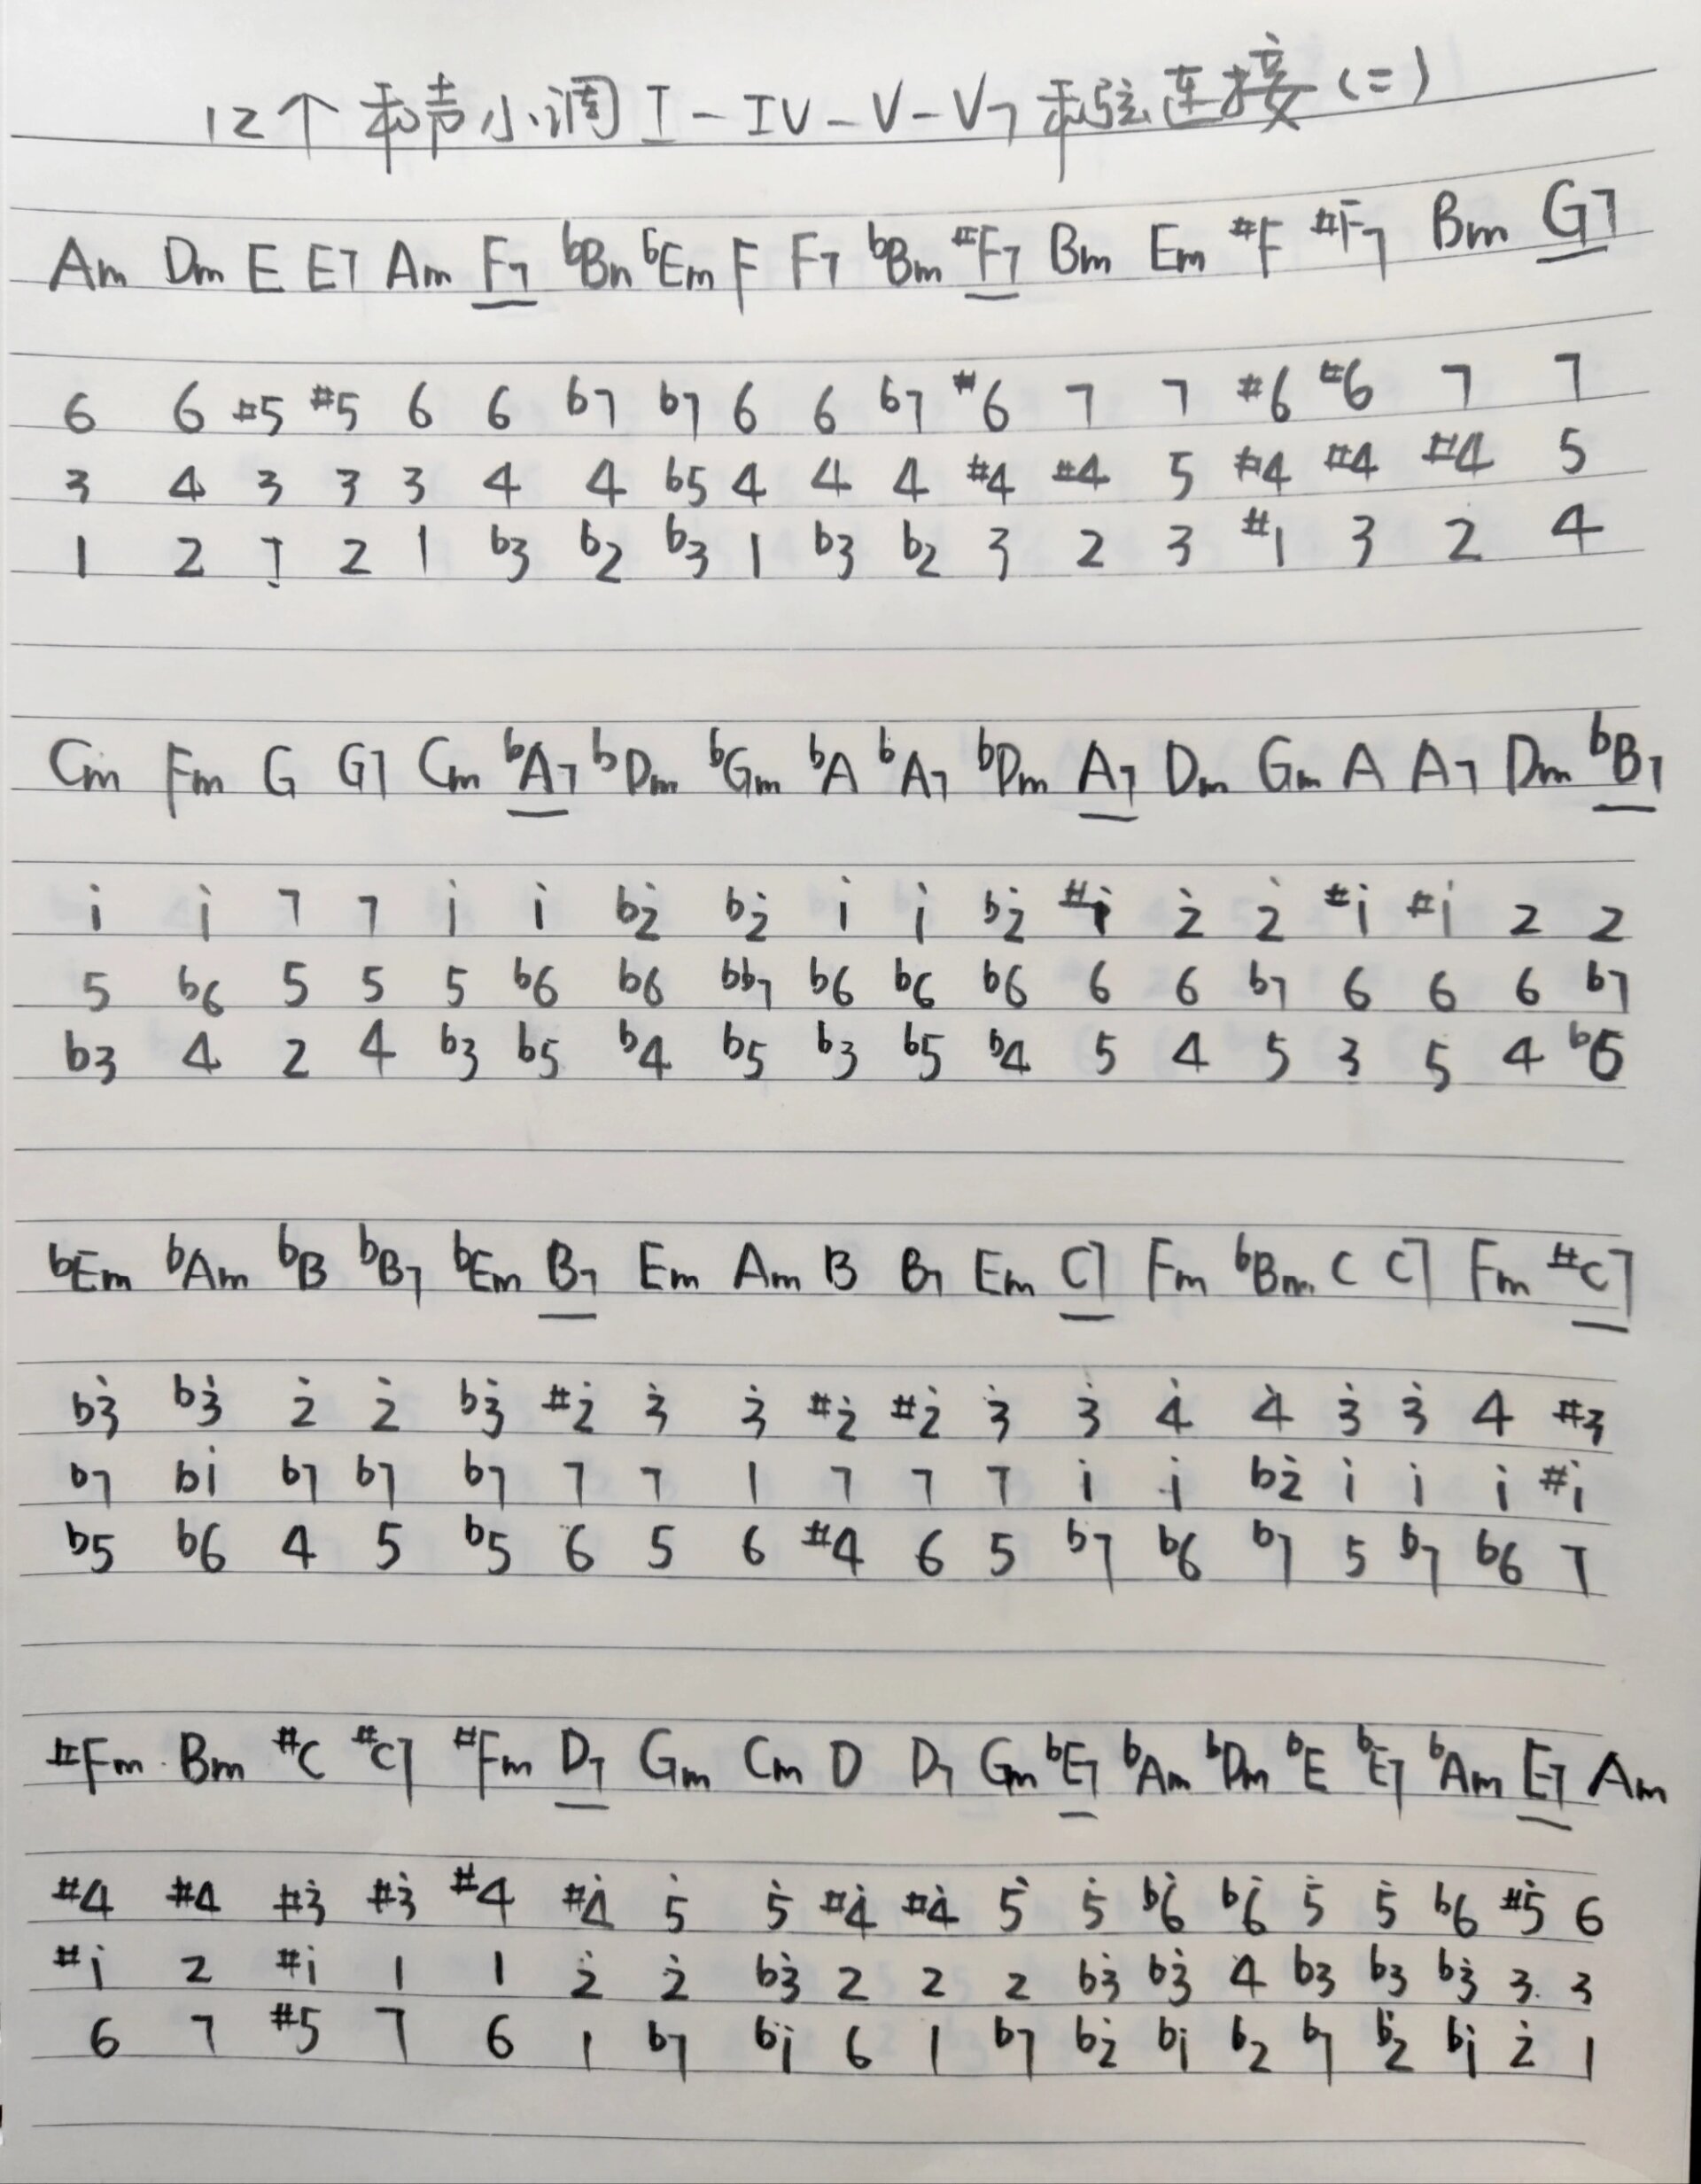 12个和声小调 I-IV-V-V7 和弦连接(二)
Am Dm E E7 Am F7 bBm bEm F F7 bBm #F7 Bm Em #F #F7 Bm G7
6 6 #5 #5 6 6 b7 b7 6 6 b7 #6 7 7 #6 #6 7 7
3 4 3 3 3 4 4 b5 4 4 4 #4 #4 5 #4 #4 #4 5
1 2 7̣ 2 1 b3 b2 b3 1 b3 b2 3 2 3 #1 3 2 4
Cm Fm G G7 Cm bA7 bDm bGm bA bA7 bDm A7 Dm Gm A A7 Dm bB7
i i 7 7 i i b2̇ b2̇ i i b2̇ #i 2̇ 2̇ #i #i 2 2
5 b6 5 5 5 b6 b6 bb7 b6 b6 b6 6 6 b7 6 6 6 b7
b3 4 2 4 b3 b5 b4 b5 b3 b5 b4 5 4 5 3 5 4 b6
bEm bAm bB bB7 bEm B7 Em Am B B7 Em C7 Fm bBm C C7 Fm #C7
b3̇ b3̇ 2̇ 2̇ b3̇ #2̇ 3̇ 3̇ #2̇ #2̇ 3̇ 3̇ 4̇ 4̇ 3̇ 3̇ 4 #3
b7 bi b7 b7 b7 7 7 1 7 7 7 i i b2̇ i i i #i
b5 b6 4 5 b5 6 5 6 #4 6 5 b7 b6 b7 5 b7 b6 7
#Fm Bm #C #C7 #Fm D7 Gm Cm D D7 Gm bE7 bAm bDm bE bE7 bAm E7 Am
#4 #4 #3̇ #3̇ #4 #4̇ 5̇ 5̇ #4̇ #4̇ 5̇ 5̇ b6̇ b6̇ 5̇ 5̇ b6 #5 6
#i 2 #i 1 1 2̇ 2̇ b3̇ 2 2 2 b3̇ b3̇ 4 b3 b3 b3̇ 3 3
6 7 #5 7 6 1 b7 bi 6 1 b7 b2̇ bi b2 b7 b2̇ bi 2̇ 1